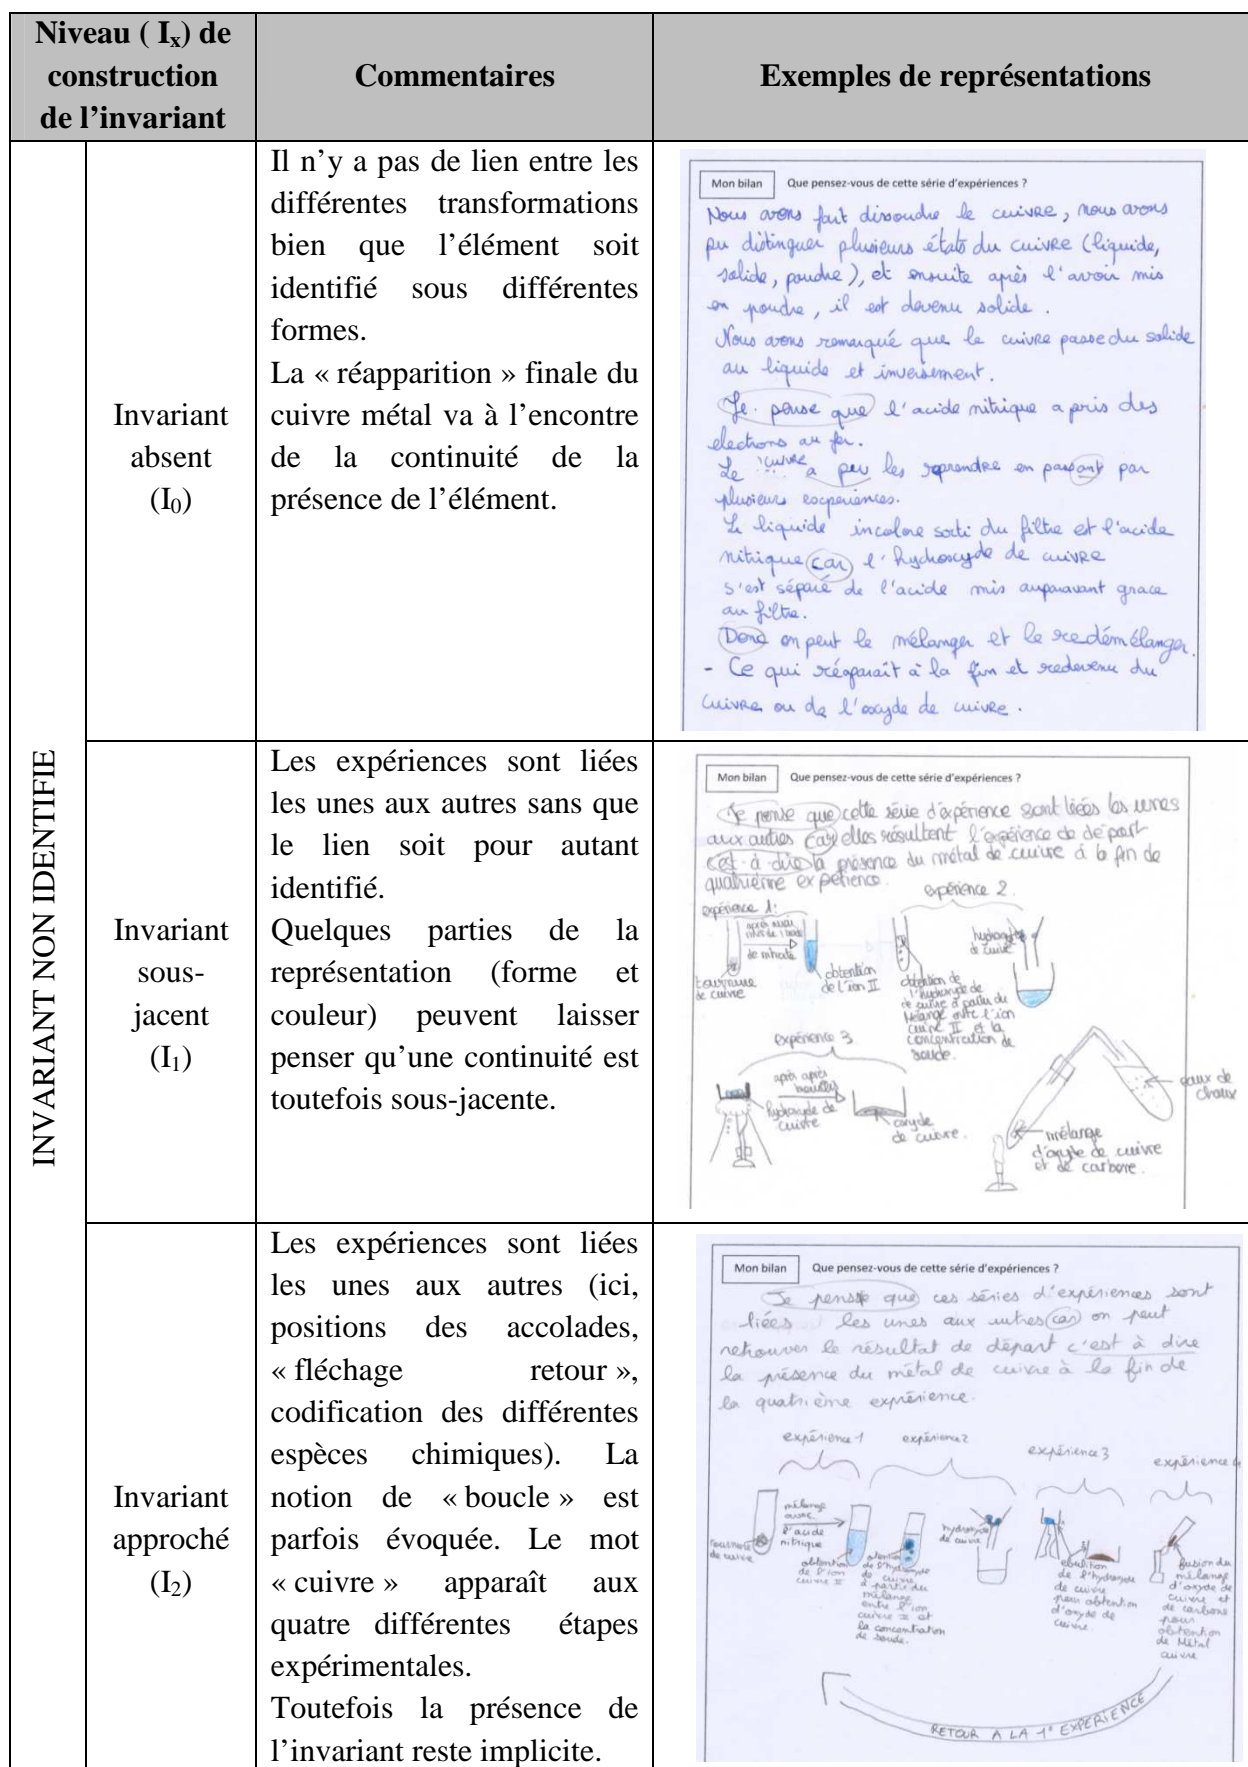 Niveau ( Ix) de
construction
de l’invariant
Commentaires
Exemples de représentations
INVARIANT NON IDENTIFIE
Invariant
absent
(I0)
Il n’y a pas de lien entre les
différentes transformations
bien que l’élément soit
identifié sous différentes
formes.
La « réapparition » finale du
cuivre métal va à l’encontre
de la continuité de la
présence de l’élément.
Mon bilan Que pensez-vous de cette série d’expériences ?
Nous avons fait dissoudre le cuivre, nous avons
pu distinguer plusieurs états du cuivre (liquide,
solide, poudre), et ensuite après l'avoir mis
en poudre, il est devenu solide.
Nous avons remarqué que le cuivre passe du solide
au liquide et inversement.
Je pense que l'acide nitrique a pris des
electrons au fer.
Le cuivre a peu les reprendre en passant par
plusieurs expériences.
Le liquide incolore sorti du filtre et l'acide
nitrique car l'hydroxyde de cuivre
s'est séparé de l'acide mis auparavant grace
au filtre.
Donc on peut le mélanger et le redémélanger.
- Ce qui réaparaît à la fin et redevenu du
cuivre ou de l'oxyde de cuivre.
Invariant
sous-
jacent
(I1)
Les expériences sont liées
les unes aux autres sans que
le lien soit pour autant
identifié.
Quelques parties de la
représentation (forme et
couleur) peuvent laisser
penser qu’une continuité est
toutefois sous-jacente.
Mon bilan Que pensez-vous de cette série d’expériences ?
Je pense que cette série d'expérience sont liées les unes
aux autres car elles résultent l'expérience de départ
c'est-à-dire la présence du métal de cuivre à la fin de
quatrième expérience.
expérience 1:
tournure
de cuivre
de nitrate
obtention
de l'ion II
expérience 2
obtention de
l'hydroxyde de
cuivre à partir du
mélange entre l'ion
cuivre II et la
concentration de
soude.
hydroxyde
de cuivre
expérience 3
après après
hydroxyde de
cuivre
oxyde
de cuivre.
mélange
d'oxyde de cuivre
et de carbone.
eaux de
chaux
Invariant
approché
(I2)
Les expériences sont liées
les unes aux autres (ici,
positions des accolades,
« fléchage retour »,
codification des différentes
espèces chimiques). La
notion de « boucle » est
parfois évoquée. Le mot
« cuivre » apparaît aux
quatre différentes étapes
expérimentales.
Toutefois la présence de
l’invariant reste implicite.
Mon bilan Que pensez-vous de cette série d’expériences ?
Je pense que ces séries d'expériences sont
liées les unes aux autres car on peut
retrouver le résultat de départ c'est à dire
la présence du métal de cuivre à la fin de
la quatrième expérience.
expérience 1
expérience 2
expérience 3
expérience 4
tournure
de cuivre
mélange
avec
l'acide
nitrique
obtention
de l'ion
cuivre II
de l'hydroxyde
de cuivre
à partir du
mélange
entre l'ion
cuivre II et
la concentration
de soude.
hydroxyde
de cuivre
ebulition
de l'hydroxyde
de cuivre
pour obtention
d'oxyde de
cuivre.
fusion du
mélange
d'oxyde de
cuivre et
de carbone
pour
obtention
de Métal
cuivre
RETOUR A LA 1° EXPERIENCE